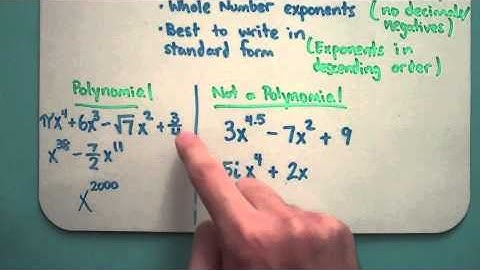 • Whole Number exponents (no decimals/
negatives)
• Best to write in
standard form (Exponents in
descending order)
Polynomial
πx⁴ + 6x³ - √7x² + 3/4
x³⁸ - 7/2x¹¹
x²⁰⁰⁰
Not a Polynomial
3x⁴·⁵ - 7x² + 9
5ix⁴ + 2x